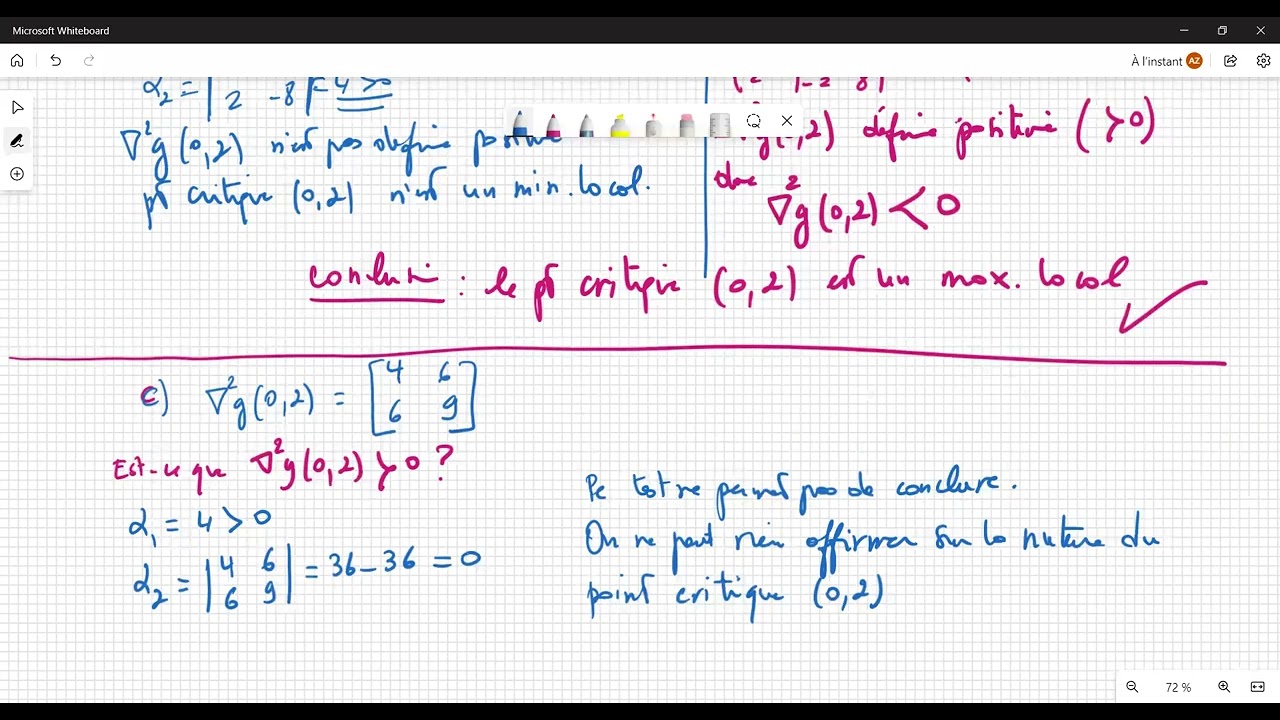 Microsoft Whiteboard
À l'instant AZ
α₂ = | 2 -8 | = 4 > 0
∇²g(0,2) n'est pas définie positive
pt critique (0,2) n'est un min. local.
g(0,2) définie positive (≻0)
donc
∇²g(0,2) ≺ 0
conclusion : le pt critique (0,2) est un max. local
c) ∇²g(0,2) = [4 6
6 9]
Est-ce que ∇²g(0,2) ≻ 0 ?
α₁ = 4 > 0
α₂ = |4 6
6 9| = 36 - 36 = 0
Le test ne permet pas de conclure.
On ne peut rien affirmer sur la nature du
point critique (0,2)
72 %